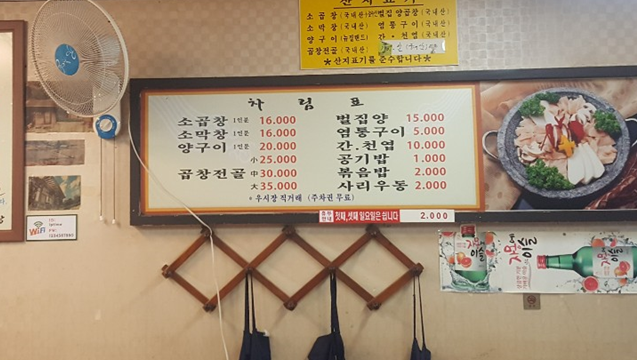 산 지 표 기
소 곱 창 (국내산) 벌집양곱창 (국내산)
소 막 창 (국내산) 염 통 구 이 (국내산)
양 구 이 (뉴질랜드) 간 . 천 엽 (국내산)
곱창전골 (국내산)
★산지표기를 준수합니다★
차 림 표
소곱창 1인분 16.000 벌집양 15.000
소막창 1인분 16.000 염통구이 5.000
양구이 1인분 20.000 간.천엽 10.000
小 25.000 공기밥 1.000
곱창전골 中 30.000 볶음밥 2.000
大 35.000 사리우동 2.000
* 우시장 직거래 (주차권 무료)
첫째,셋째 일요일은 쉽니다 2.000
WiFi
자몽에
이슬
자몽에
이슬